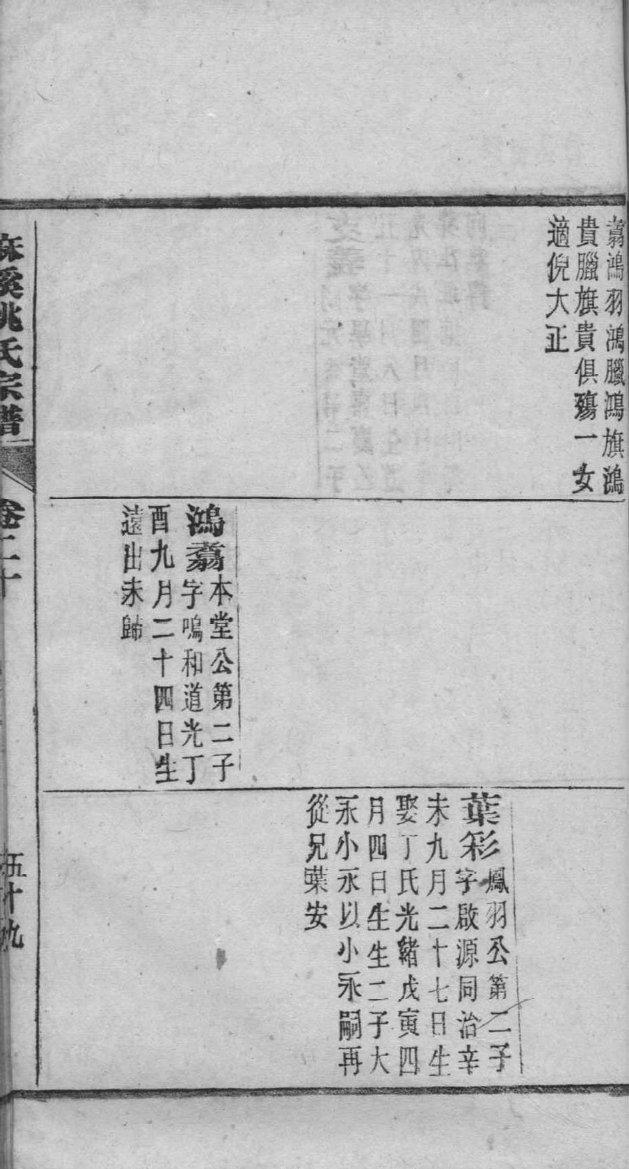 翥鴻羽鴻臘鴻旗鴻
貴臘旗貴俱殤一女
適倪大正
本堂公第二子
鴻翥字鳴和道光丁
酉九月二十四日生
遠出未歸
鳳羽公第二子
葉彩字啟源同治辛
未九月二十七日生
娶丁氏光緒戊寅四
月四日生生二子大
永小永以小永嗣再
從兄葉安
麻溪姚氏宗譜
卷二十
五十九